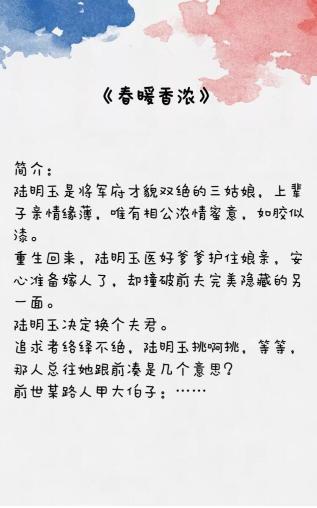 《春暖香浓》
简介：
陆明玉是将军府才貌双绝的三姑娘，上辈
子亲情缘薄，唯有相公浓情蜜意，如胶似
漆。
重生回来，陆明玉医好爹爹护住娘亲，安
心准备嫁人了，却撞破前夫完美隐藏的另
一面。
陆明玉决定换个夫君。
追求者络绎不绝，陆明玉挑啊挑，等等，
那人总往她跟前凑是几个意思？
前世某路人甲大伯子：……